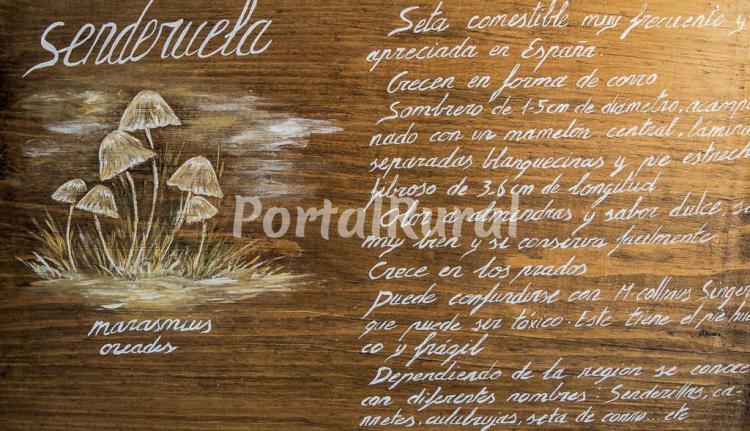 Senderuela
marasmius
oreades
Seta comestible muy frecuente y
apreciada en España.
Crecen en forma de corro
Sombrero de 1-5cm de diámetro, acampa
nado con un mamelón central, lámina
separadas blanquecinas y pie estrech
fibroso de 3,6 cm de longitud
Olor a almendras y sabor dulce, se
muy bien y se conserva facilmente
Crece en los prados
Puede confundirse con M. collinus Singer
que puede ser tóxico. Este tiene el pie hue
co y frágil
Dependiendo de la región se conoce
con diferentes nombres: Senderillas, ca-
rretes, cuculbrujas, seta de corro... etc
PortalRural